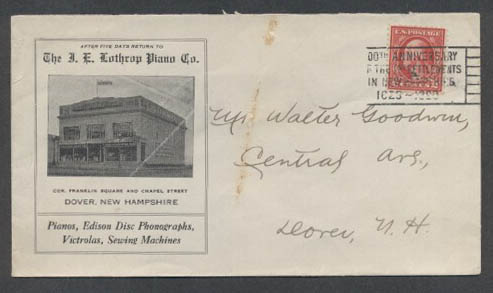 AFTER FIVE DAYS RETURN TO
The J. E. Lothrop Piano Co.
COR. FRANKLIN SQUARE AND CHAPEL STREET
DOVER, NEW HAMPSHIRE
Pianos, Edison Disc Phonographs,
Victrolas, Sewing Machines
U.S. POSTAGE
00TH ANNIVERSARY
SETTLEMENTS
IN NEW
1623-1923
Mr Walter Goodwin,
Central Ave.,
Dover, N. H.